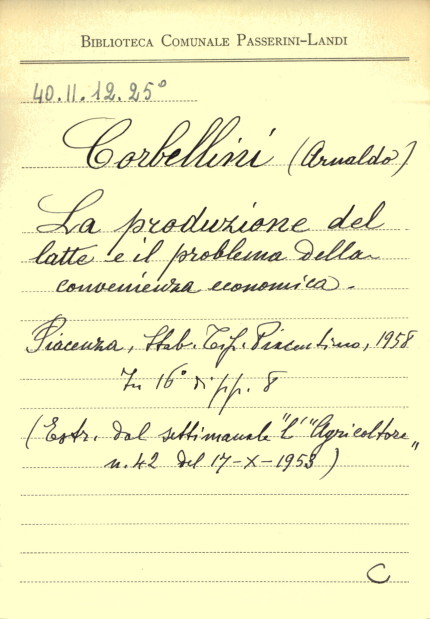 BIBLIOTECA COMUNALE PASSERINI-LANDI
40.II.12.25°
Corbellini (Arnaldo)
La produzione del
latte e il problema della
convenienza economica.
Piacenza, Stab. Tip. Piacentino, 1958
In 16° di pp. 8
(Estr. dal settimanale "L'Agricoltore"
n. 42 del 17-X-1953)
C